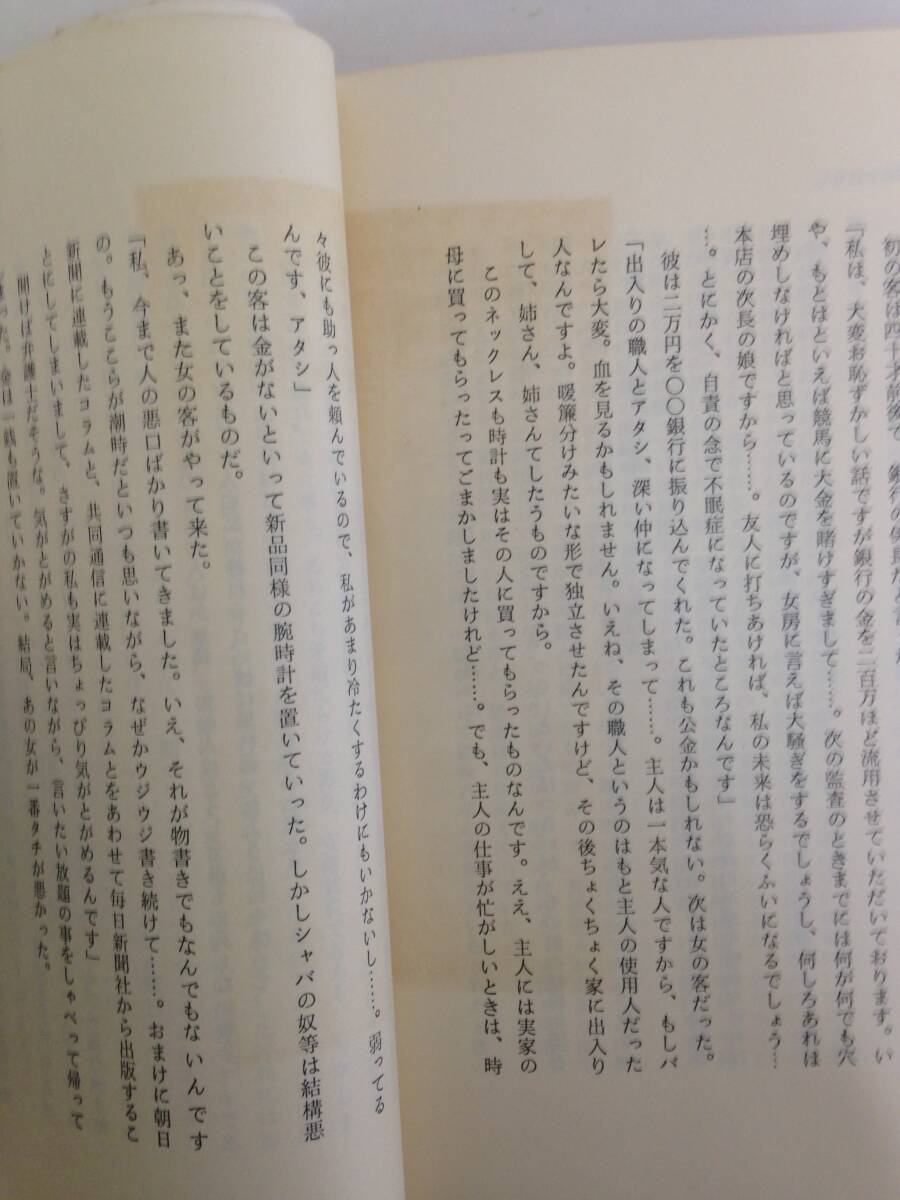 初の客は四十才前後で、銀行の係長だと言
「私は、大変お恥ずかしい話ですが銀行の金を二百万ほど流用させていただいております。い
や、もとはといえば競馬に大金を賭けすぎまして……。次の監査のときまでには何が何でも穴
埋めしなければと思っているのですが、女房に言えば大騒ぎをするでしょうし、何しろあれは
本店の次長の娘ですから……。友人に打ちあければ、私の未来は恐らくふいになるでしょう…
…。とにかく、自責の念で不眠症になっていたところなんです」
彼は二万円を〇〇銀行に振り込んでくれた。これも公金かもしれない。次は女の客だった。
「出入りの職人とアタシ、深い仲になってしまって……。主人は一本気な人ですから、もしバ
レたら大変。血を見るかもしれません。いえね、その職人というのはもと主人の使用人だった
人なんですよ。暖簾分けみたいな形で独立させたんですけど、その後ちょくちょく家に出入り
して、姉さん、姉さんてしたうものですから。
このネックレスも時計も実はその人に買ってもらったものなんです。ええ、主人には実家の
母に買ってもらったってごまかしましたけれど……。でも、主人の仕事が忙がしいときは、時
々彼にも助っ人を頼んでいるので、私があまり冷たくするわけにもいかないし……。弱ってる
んです、アタシ」
この客は金がないといって新品同様の腕時計を置いていった。しかしシャバの奴等は結構悪
いことをしているものだ。
あっ、また女の客がやって来た。
「私、今まで人の悪口ばかり書いてきました。いえ、それが物書きでもなんでもないんです
の。もうここらが潮時だといつも思いながら、なぜかウジウジ書き続けて……。おまけに朝日
新聞に連載したコラムと、共同通信に連載したコラムとをあわせて毎日新聞社から出版するこ
とにしてしまいまして、さすがの私も実はちょっぴり気がとがめるんです」
聞けば弁護士だそうな。気がとがめると言いながら、言いたい放題の事をしゃべって帰って
った。金は一銭も置いていかない。結局、あの女が一番タチが悪かった。